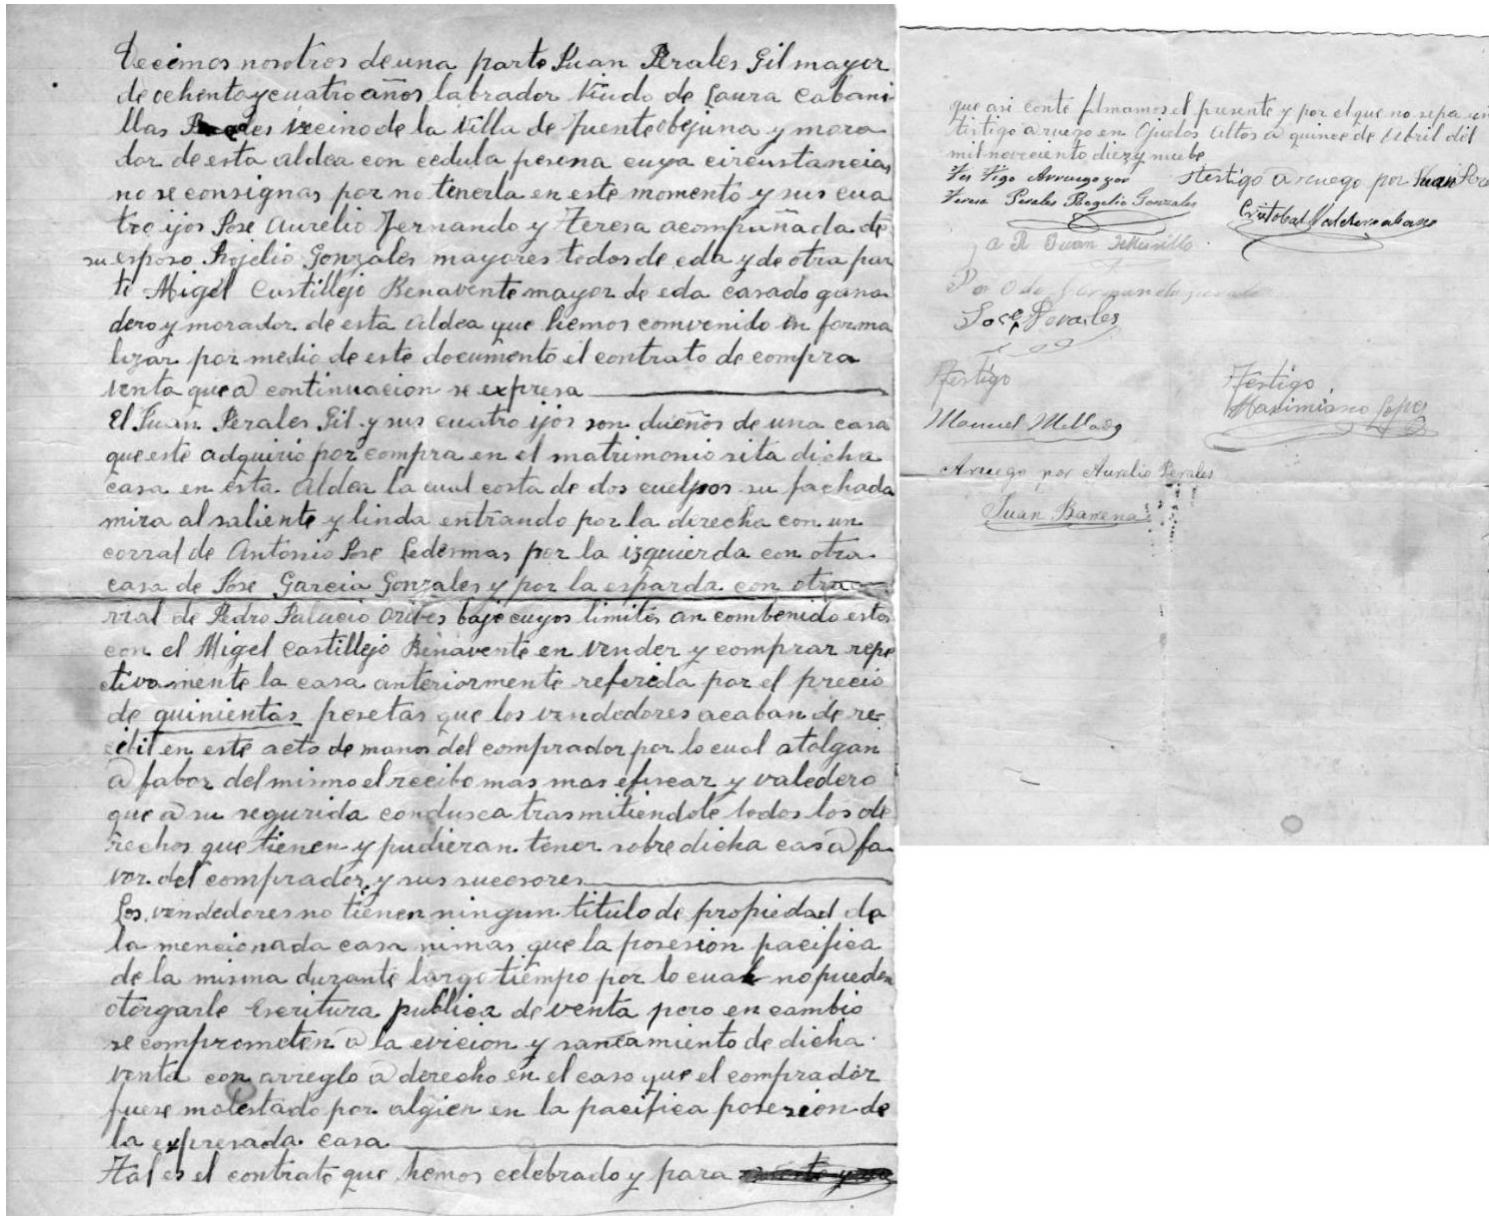 Decimos nosotros de una parte Juan Perales Gil mayor
de ochenta y cuatro años labrador viudo de Laura Cabani
llas vecino de la villa de fuente obejuna y mora
dor de esta aldea con cedula persona cuya circustancias
no se consignas por no tenerla en este momento y sus cua
tro ijos Jose Aurelio Fernando y Teresa acompañada de
su esposo Rojelio Gonzales mayores todos de eda y de otra par
te Migel Castillejo Benavente mayor de eda casado gana
dero y morador de esta aldea que hemos comvenido en forma
lizar por medio de este documento el contrato de compra
venta que a continuacion se expresa
El Juan Perales Gil y sus cuatro ijos son dueños de una casa
que este adquirio por compra en el matrimonio sita dicha
casa en esta Aldea la cual costa de dos cuelpos su fachada
mira al saliente y linda entrando por la derecha con un
corral de Antonio Jose Ledesmas por la izquierda con otra
casa de Jose Garcia Gonzales y por la esparda con otra
rral de Pedro Palacio bajo cuyos limites an combenido estos
con el Migel Castillejo Benavente en vender y comprar repe
ctivamente la casa anteriormente referida por el precio
de quinientas pesetas que los vendedores acaban de re
cibil en este acto de manos del comprador por lo cual atolgan
a fabor del mismo el recibo mas mas eficear y valedero
que a su segurida condusca trasmitiendole todos los de
rechos que tienen y pudieran tener sobre dicha casa a fa
vor del comprador y sus sucesores
Los vendedores no tienen ningun titulo de propiedad de
la mencionada casa nimas que la posesion pacifica
de la misma durante largo tiempo por lo cual no pueden
otorgarle escritura publica de venta pero en cambio
se comprometen a la evicion y saneamiento de dicha
venta con arreglo a derecho en el caso que el comprador
fuese molestado por algien en la pacifica posesion de
la expresada casa
Tal es el contrato que hemos celebrado y para
que asi conte filmamos el presente y por el que no sepa un
tistigo a ruego en Ojuelos Altos a quince de Abril del
mil noveciento diez y nuebe
Tes Tigo Arruego por
Teresa Perales Rogelio Gonzales
Testigo a ruego por Juan Pera
Cristobal
Juan
Por
Jose Perales
Testigo
Manuel Mellado
Testigo
Maximiano Lopez
Aruego por Aurelio Perales
Juan Barrena